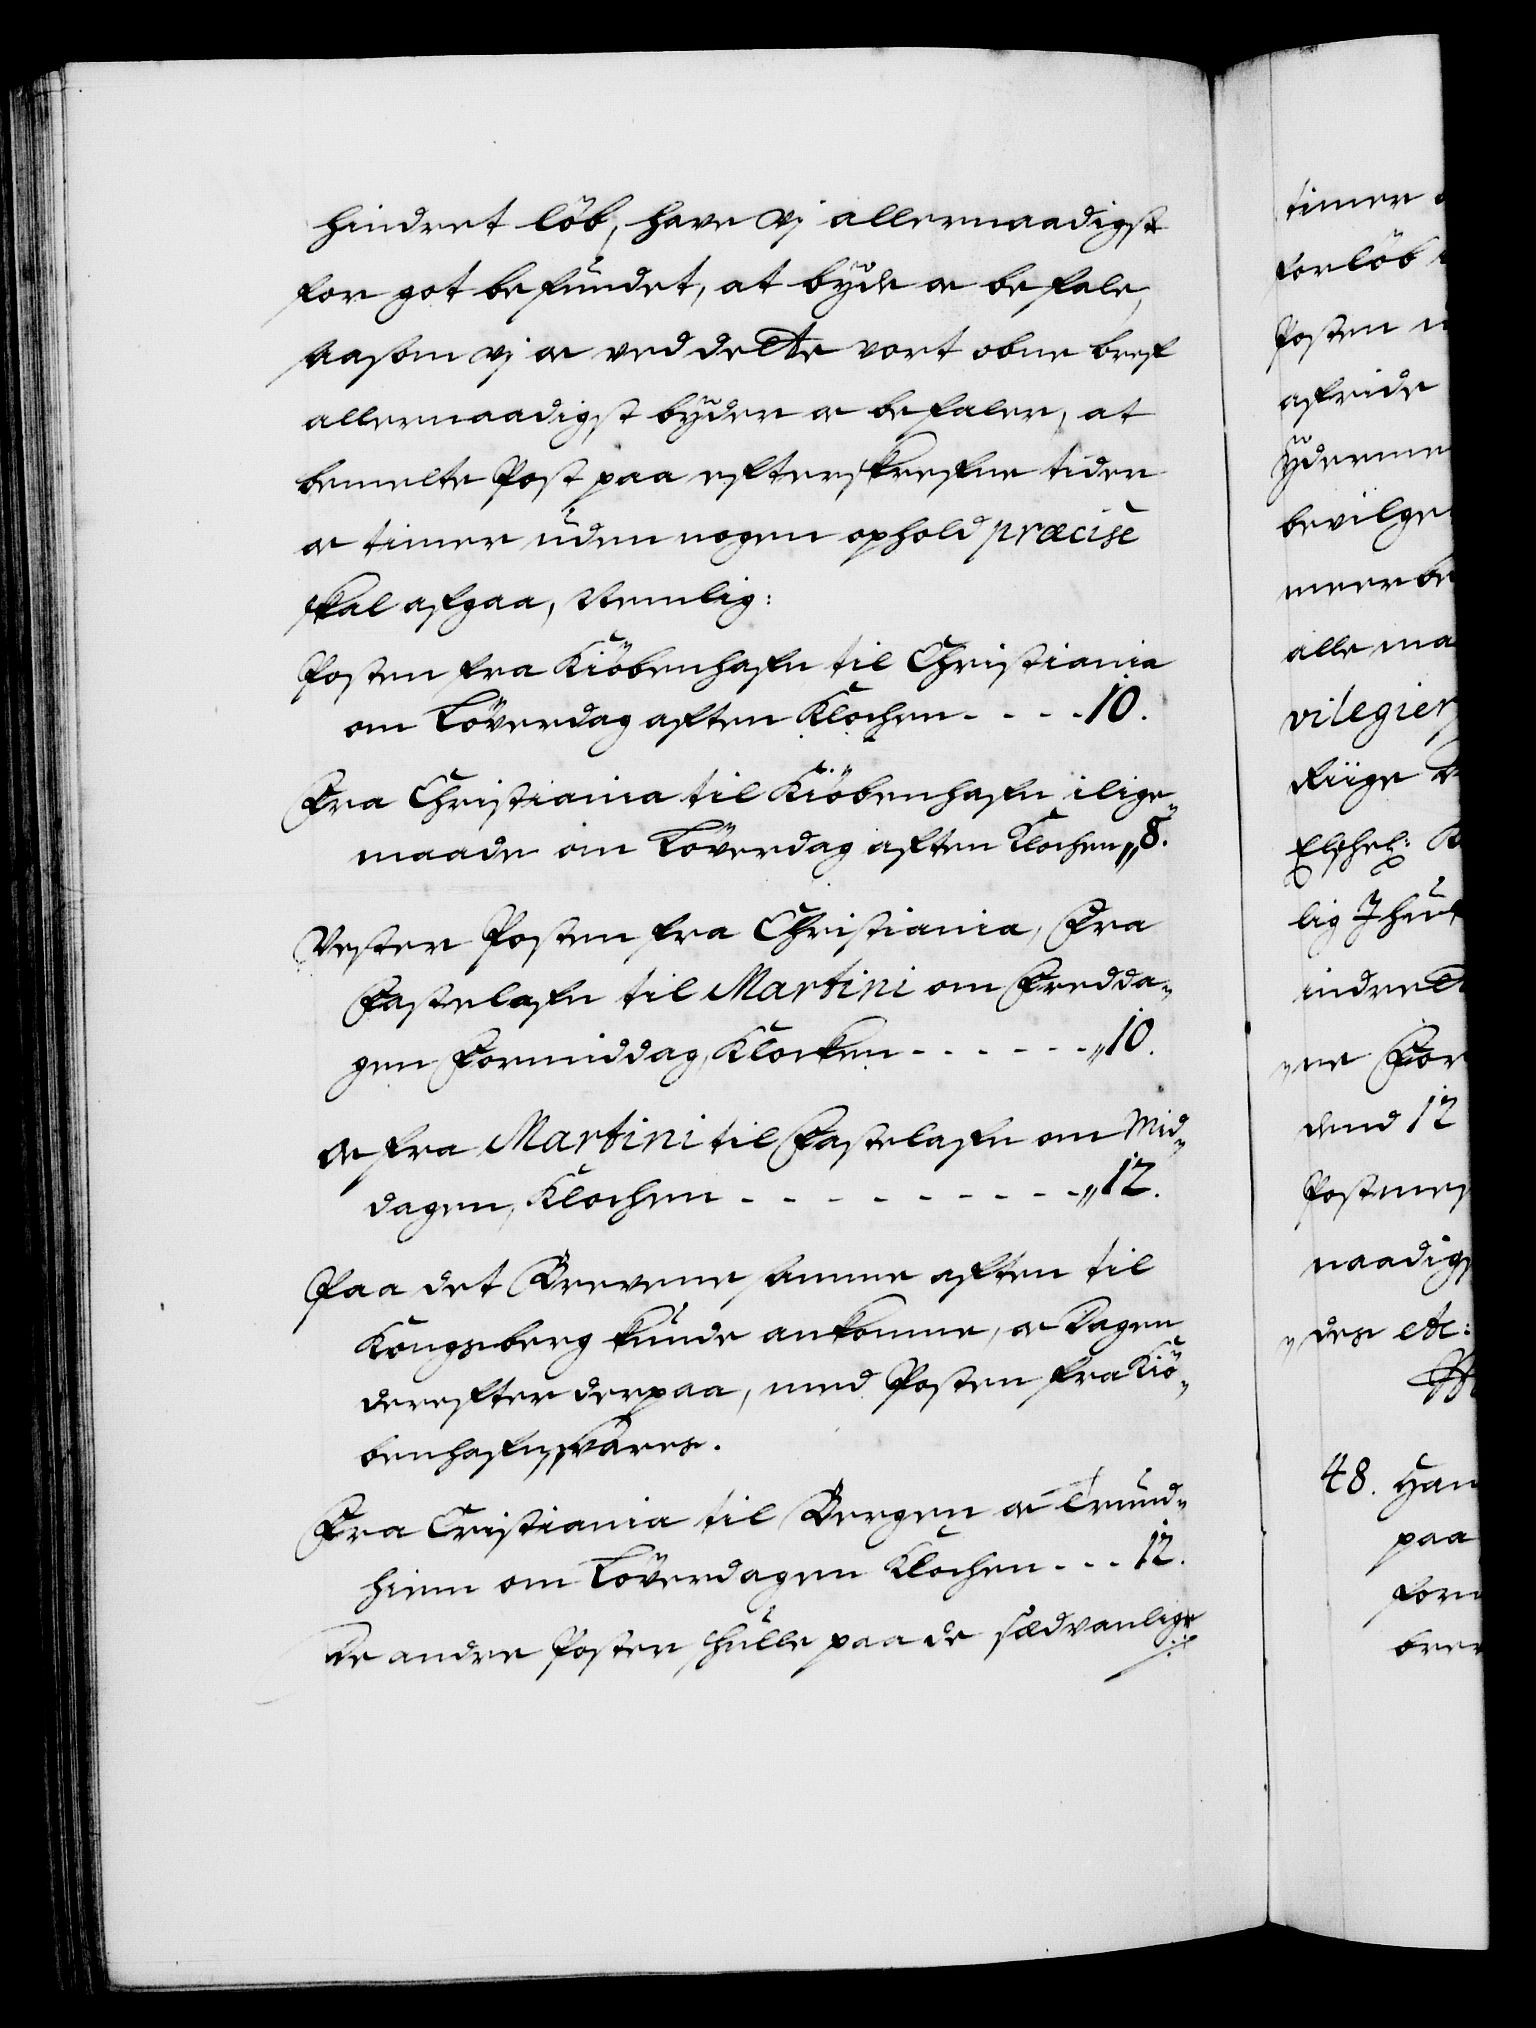 hindret löb, have Vj allernaadigst
for got befundet, at byde oc befale,
saasom vj oc ved dette vort obne bref
allernaadigst byder oc befaler, at
bemelte Post paa efterskrefne tider
oc timer uden nogen ophold præcise
skal afgaa, Nemlig:
Posten fra Kiöbenhafn til Christiania
om Löverdag aften Klochen - - - - 10.
Fra Christiania til Kiöbenhafn ilige„
maade om Löverdag aften Klochen „ 8.
Vester Posten fra Christiania, Fra
Fastelafn til Martini om Fredda„
gen Formiddag, Klocken - - - - - - „ 10.
oc fra Martini til Fastelafn om Mid„
dagen, Klochen - - - - - - - - - „ 12.
Paa det Brevene samme aften til
Kongsberg kunde ankomme, oc Dagen
derefter derpaa, med Posten fra Kiö„
benhafn, svares.
Fra Cristiania til Bergen oc Trund„
hiem om Löverdagen Klochen - - - 12.
De andre Poster skulle paa de sædvanlige
timer
forlöb
Posten
afride
yderme
bevilge
meer be
alle ma
vilegier
Riige
lig Thu
indrett
„ne For
dend 12
Postmes
naadigs
„des etc:
48. Han
paa
for
brev